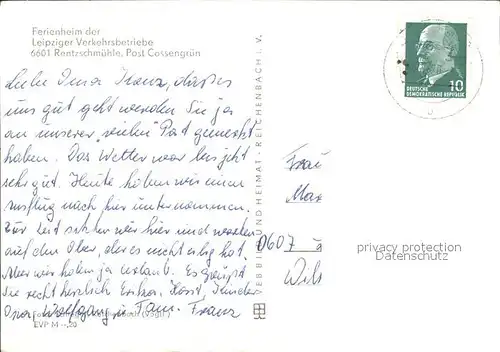 Ferienheim der
Leipziger Verkehrsbetriebe
6601 Rentzschmühle, Post Cossengrün
Liebe Oma Franz, daß es
uns gut geht werden Sie ja
an unserer "vielen" Post gemerkt
haben. Das Wetter war bis jetzt
sehr gut. Heute haben wir einen
Ausflug nach hier unternommen.
Zur Zeit sitzen wir hier und warten
auf den Ober, der es nicht eilig hat.
Aber wir haben ja Urlaub. Es grüßt
Sie recht herzlich Erika, Horst, Kinder
Oma, Wolfgang u. Fam. Franz
EVP M -,20
VEB BILD UND HEIMAT · REICHENBACH I. V.
10
DEUTSCHE
DEMOKRATISCHE REPUBLIK
Frau
Max
0607
privacy protection
Datenschutz